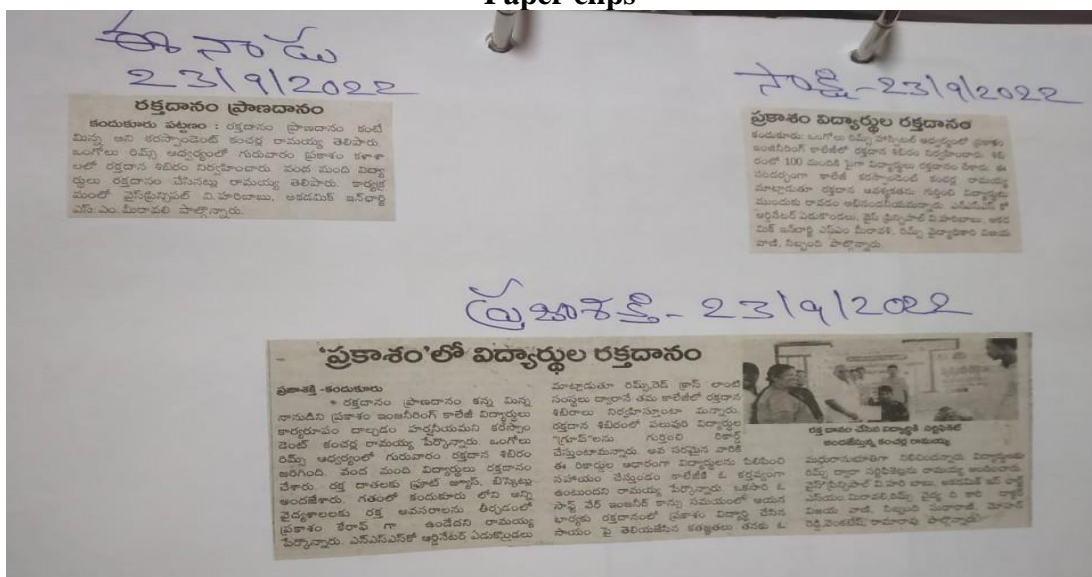 Paper clips
ఈనాడు
23/9/2022
రక్తదానం ప్రాణదానం
కందుకూరు పట్టణం : రక్తదానం ప్రాణదానం కంటే
మిన్న అని కరస్పాండెంట్ కంచర్ల రామయ్య తెలిపారు.
ఒంగోలు రిమ్స్ ఆధ్వర్యంలో గురువారం ప్రకాశం కళాశా
లలో రక్తదాన శిబిరం నిర్వహించారు. వంద మంది విద్యా
ర్థులు రక్తదానం చేసినట్లు రామయ్య తెలిపారు. కార్యక్ర
మంలో వైస్‌ప్రిన్సిపల్ వి.హరిబాబు, అకడమిక్ ఇన్‌ఛార్జి
ఎస్.ఎం.మీరావలి పాల్గొన్నారు.
సాక్షి - 23/9/2022
ప్రకాశం విద్యార్థుల రక్తదానం
కందుకూరు: ఒంగోలు రిమ్స్ హాస్పిటల్ ఆధ్వర్యంలో ప్రకాశం
ఇంజినీరింగ్ కాలేజీలో రక్తదాన శిబిరం నిర్వహించారు. శిబి
రంలో 100 మందికి పైగా విద్యార్థులు రక్తదానం చేశారు. ఈ
సందర్భంగా కాలేజీ కరస్పాండెంట్ కంచర్ల రామయ్య
మాట్లాడుతూ రక్తదాన ఆవశ్యకతను గుర్తించి విద్యార్థులు
ముందుకు రావడం అభినందనీయమన్నారు. ఎన్ఎస్ఎస్ కో
ఆర్డినేటర్ ఏడుకొండలు, వైస్ ప్రిన్సిపాల్ వి.హరిబాబు, అకడ
మిక్ ఇన్‌చార్జి ఎస్ఎం మీరావలి, రిమ్స్ వైద్యాధికారి విజయ
వాణి, సిబ్బంది పాల్గొన్నారు.
ప్రజాశక్తి - 23/9/2022
'ప్రకాశం'లో విద్యార్థుల రక్తదానం
ప్రజాశక్తి -కందుకూరు
రక్తదానం ప్రాణదానం కన్న మిన్న
నానుడిని ప్రకాశం ఇంజనీరింగ్ కాలేజీ విద్యార్థులు
కార్యరూపం దాల్చడం హర్షనీయమని కరస్పాం
డెంట్ కంచర్ల రామయ్య పేర్కొన్నారు. ఒంగోలు
రిమ్స్ ఆధ్వర్యంలో గురువారం రక్తదాన శిబిరం
జరిగింది. వంద మంది విద్యార్థులు రక్తదానం
చేశారు. రక్త దాతలకు ఫ్రూట్ జ్యూస్, బిస్కెట్లు
అందజేశారు. గతంలో కందుకూరు లోని అన్ని
వైద్యశాలలకు రక్త అవసరాలను తీర్చడంలో
ప్రకాశం కేరాఫ్ గా ఉండేదని రామయ్య
పేర్కొన్నారు. ఎన్ఎస్ఎస్‌కో ఆర్డినేటర్ ఏడుకొండలు
మాట్లాడుతూ రిమ్స్,రెడ్ క్రాస్ లాంటి
సంస్థలు ద్వారానే తమ కాలేజీలో రక్తదాన
శిబిరాలు నిర్వహిస్తూంటా మన్నారు.
రక్తదాన శిబిరంలో పలువురి విద్యార్థుల
"గ్రూప్"లను గుర్తించి రికార్డ్
చేస్తుంటామన్నారు. అవ సరమైన వారికి
ఈ రికార్డుల ఆధారంగా విద్యార్థులను పిలిపించి
సహాయం చేస్తుండం కాలేజీకి ఓ కర్తవ్యంగా
ఉంటుందని రామయ్య పేర్కొన్నారు. ఒకసారి ఓ
సాఫ్ట్ వేర్ ఇంజనీర్ కాన్పు సమయంలో ఆయన
భార్యకు రక్తదానంలో ప్రకాశం విద్యార్థి చేసిన
సాయం పై తెలియజేసిన కతజ్ఞతలు తనకు ఓ
రక్త దానం చేసిన విద్యార్థికి సర్టిఫికెట్
అందజేస్తున్న కంచర్ల రామయ్య
మధురానుభూతిగా నిలిచిందన్నారు. విద్యార్థులకు
రిమ్స్ ద్వారా సర్టిఫికెట్లను రామయ్య అందించారు.
వైస్ ప్రిన్సిపాల్ వి.హరి బాబు, అకడమిక్ ఇన్ ఛార్జ్
ఎస్ఎం మీరావలి,రిమ్స్ వైద్య ధి కారి డాక్టర్
విజయ వాణి, సిబ్బంది సుధారాణి, మోహన్
రెడ్డి,వెంకటేష్, రామారావు పాల్గొన్నారు.